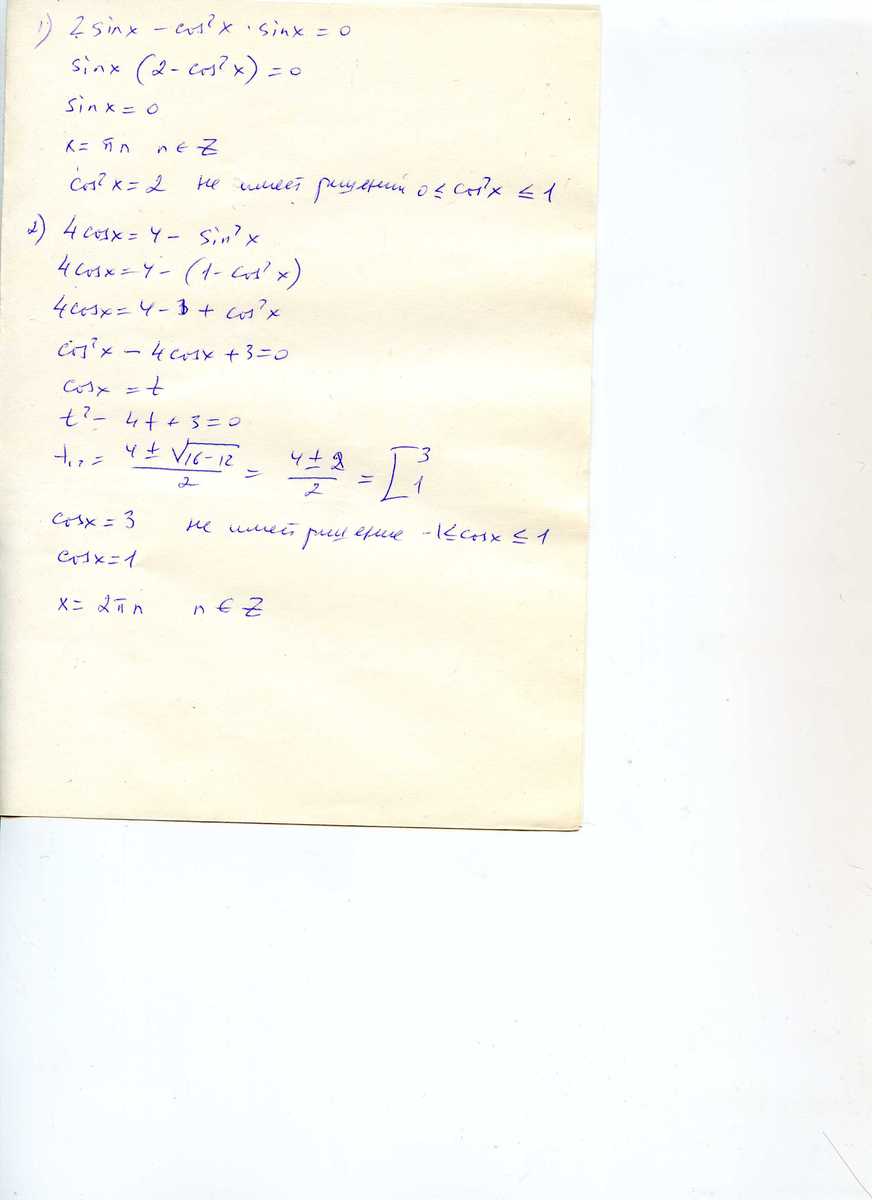 1) 2 sinx - cos²x · sinx = 0
sinx (2 - cos²x) = 0
sinx = 0
x = πn n ∈ Z
cos²x = 2 не имеет рищений 0 ≤ cos²x ≤ 1
2) 4cosx = 4 - sin²x
4cosx = 4 - (1 - cos²x)
4cosx = 4 - 1 + cos²x
cos²x - 4cosx + 3 = 0
cosx = t
t² - 4t + 3 = 0
t₁,₂ = (4 ± √(16-12))/2 = (4 ± 2)/2 = [3 1
cosx = 3 не имеет рищение -1 ≤ cosx ≤ 1
cosx = 1
x = 2πn n ∈ Z